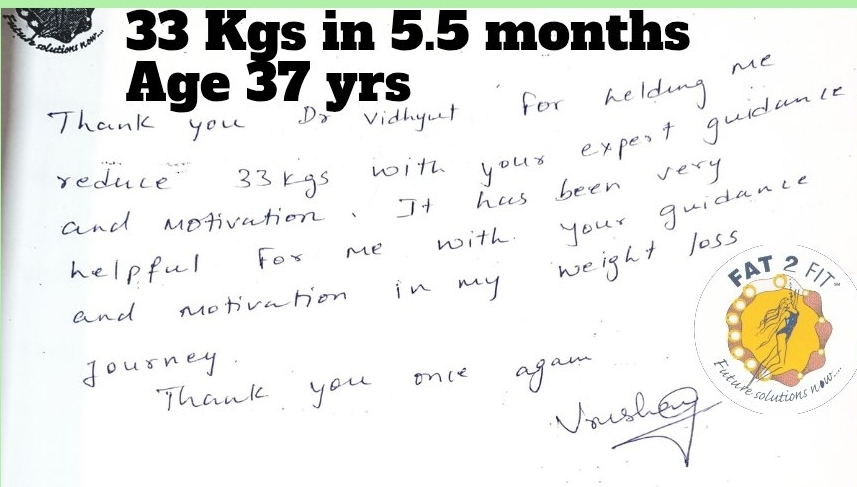 Future solutions now...
33 Kgs in 5.5 months
Age 37 yrs
Thank you Dr Vidhyut for helding me
reduce 33 kgs with your expert guidance
and motivation. It has been very
helpful for me with your guidance
and motivation in my weight loss
Journey.
Thank you once again
FAT 2 FIT
SM
Future solutions now....